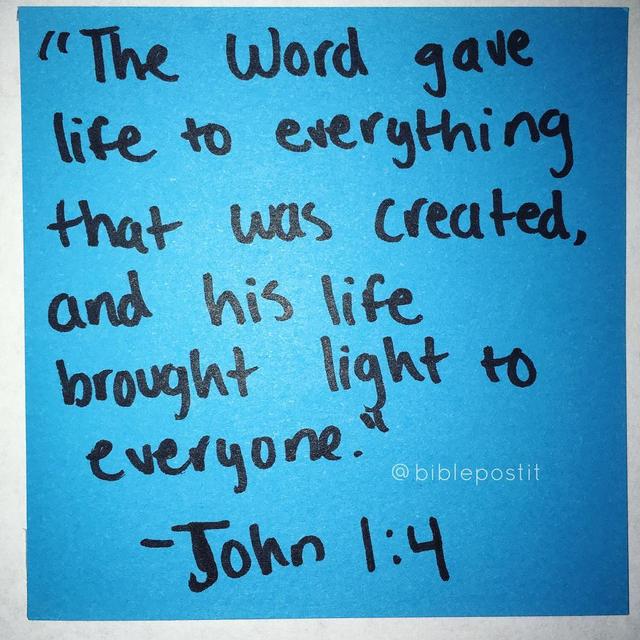 "The Word gave
life to everything
that was created,
and his life
brought light to
everyone."
@biblepostit
-John 1:4